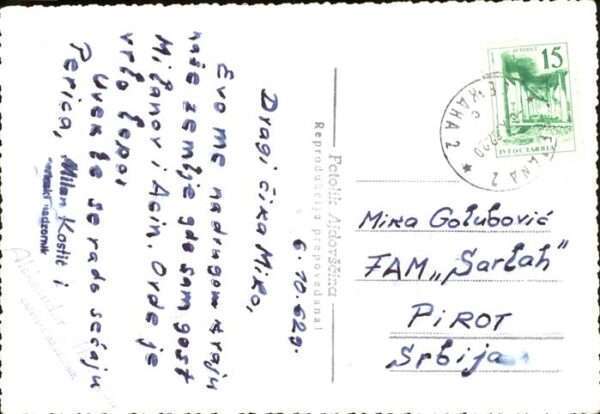 6.10.62g.
Dragi čika Miko,
Evo me na drugom kraju
naše zemlje gde sam gost
Miţanov i Acin. Ovde je
vrlo lepo.
Uvek će se rado sećaju
Perica, Milan Kostić i
nadzornik
Fotolik Ajdovščina
Reprodukcija prepovedana!
15
JUGOSLAVIJA
Mika Golubović
FAM "Šarlah"
PIROT
Srbija